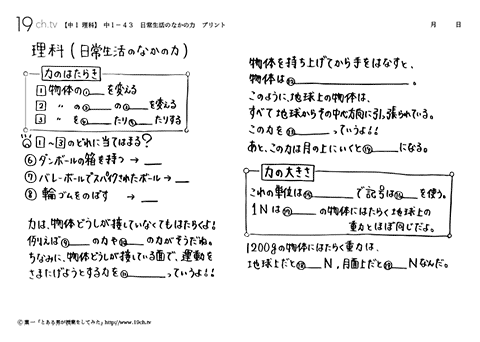 19ch.tv 【中1 理科】 中1-43 日常生活のなかの力 プリント 月 日
理科(日常生活のなかの力)
力のはたらき
1 物体の①__を変える
2 〃 の②__の③__を変える
3 〃 を④__たり⑤__たりする
1~3のどれに当てはまる?
⑥ダンボールの箱を持つ→__
⑦バレーボールでスパイクされたボール→__
⑧輪ゴムをのばす →__
力は、物体どうしが接していなくてもはたらくよ!
例えば⑨__の力や⑩__の力がそうだね。
ちなみに、物体どうしが接している面で、運動を
さまたげようとする力を⑪____っていうよ!!
物体を持ち上げてから手をはなすと、
物体は⑫________。
このように、地球上の物体は、
すべて地球からその中心方向に引っ張られている。
この力を⑬____っていうよ!!
あと、この力は月の上にいくと⑭____になる。
力の大きさ
これの単位は⑮____で記号は⑯__を使う。
1Nは⑰____の物体にはたらく地球上の
重力とほぼ同じだよ。
1200gの物体にはたらく重力は、
地球上だと⑱____N、月面上だと⑲____Nなんだ。
© 葉一「とある男が授業をしてみた」http://www.19ch.tv